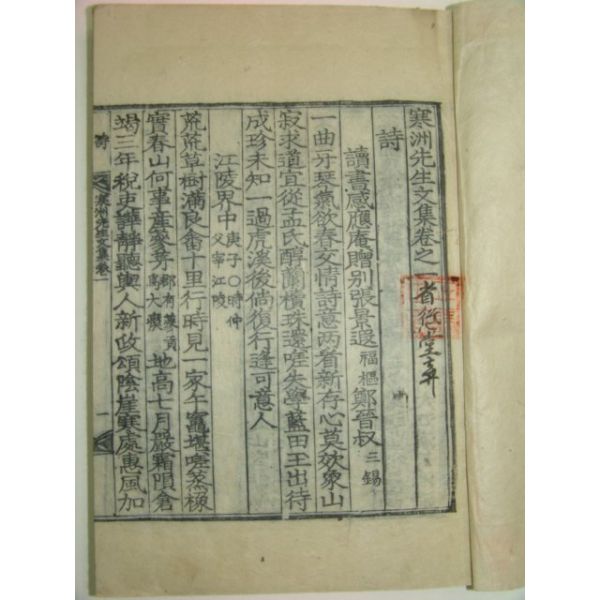 寒洲先生文集卷之一
詩
讀書感應庵贈別張景遐福樞鄭晉叔三錫
一曲牙琴氣欲春交情詩意两看新存心莫效象山
寂求道宜從孟氏醇蘭橫珠還嗟失學藍田玉出待
成珍未知一過虎溪後倘復行逢可意人
江陵界中庚子〇時仲父宰江陵
荒荒草樹滿良畬十里行時見一家午竈堪嗟蒸橡
實春山何事產蔘芽郡有蔘貢爲大瘼地高七月嚴霜隕倉
竭三年稅吏譁靜聽輿人新政頌陰崖寒處惠風加
詩
寒洲先生文集卷一
一
省
堂